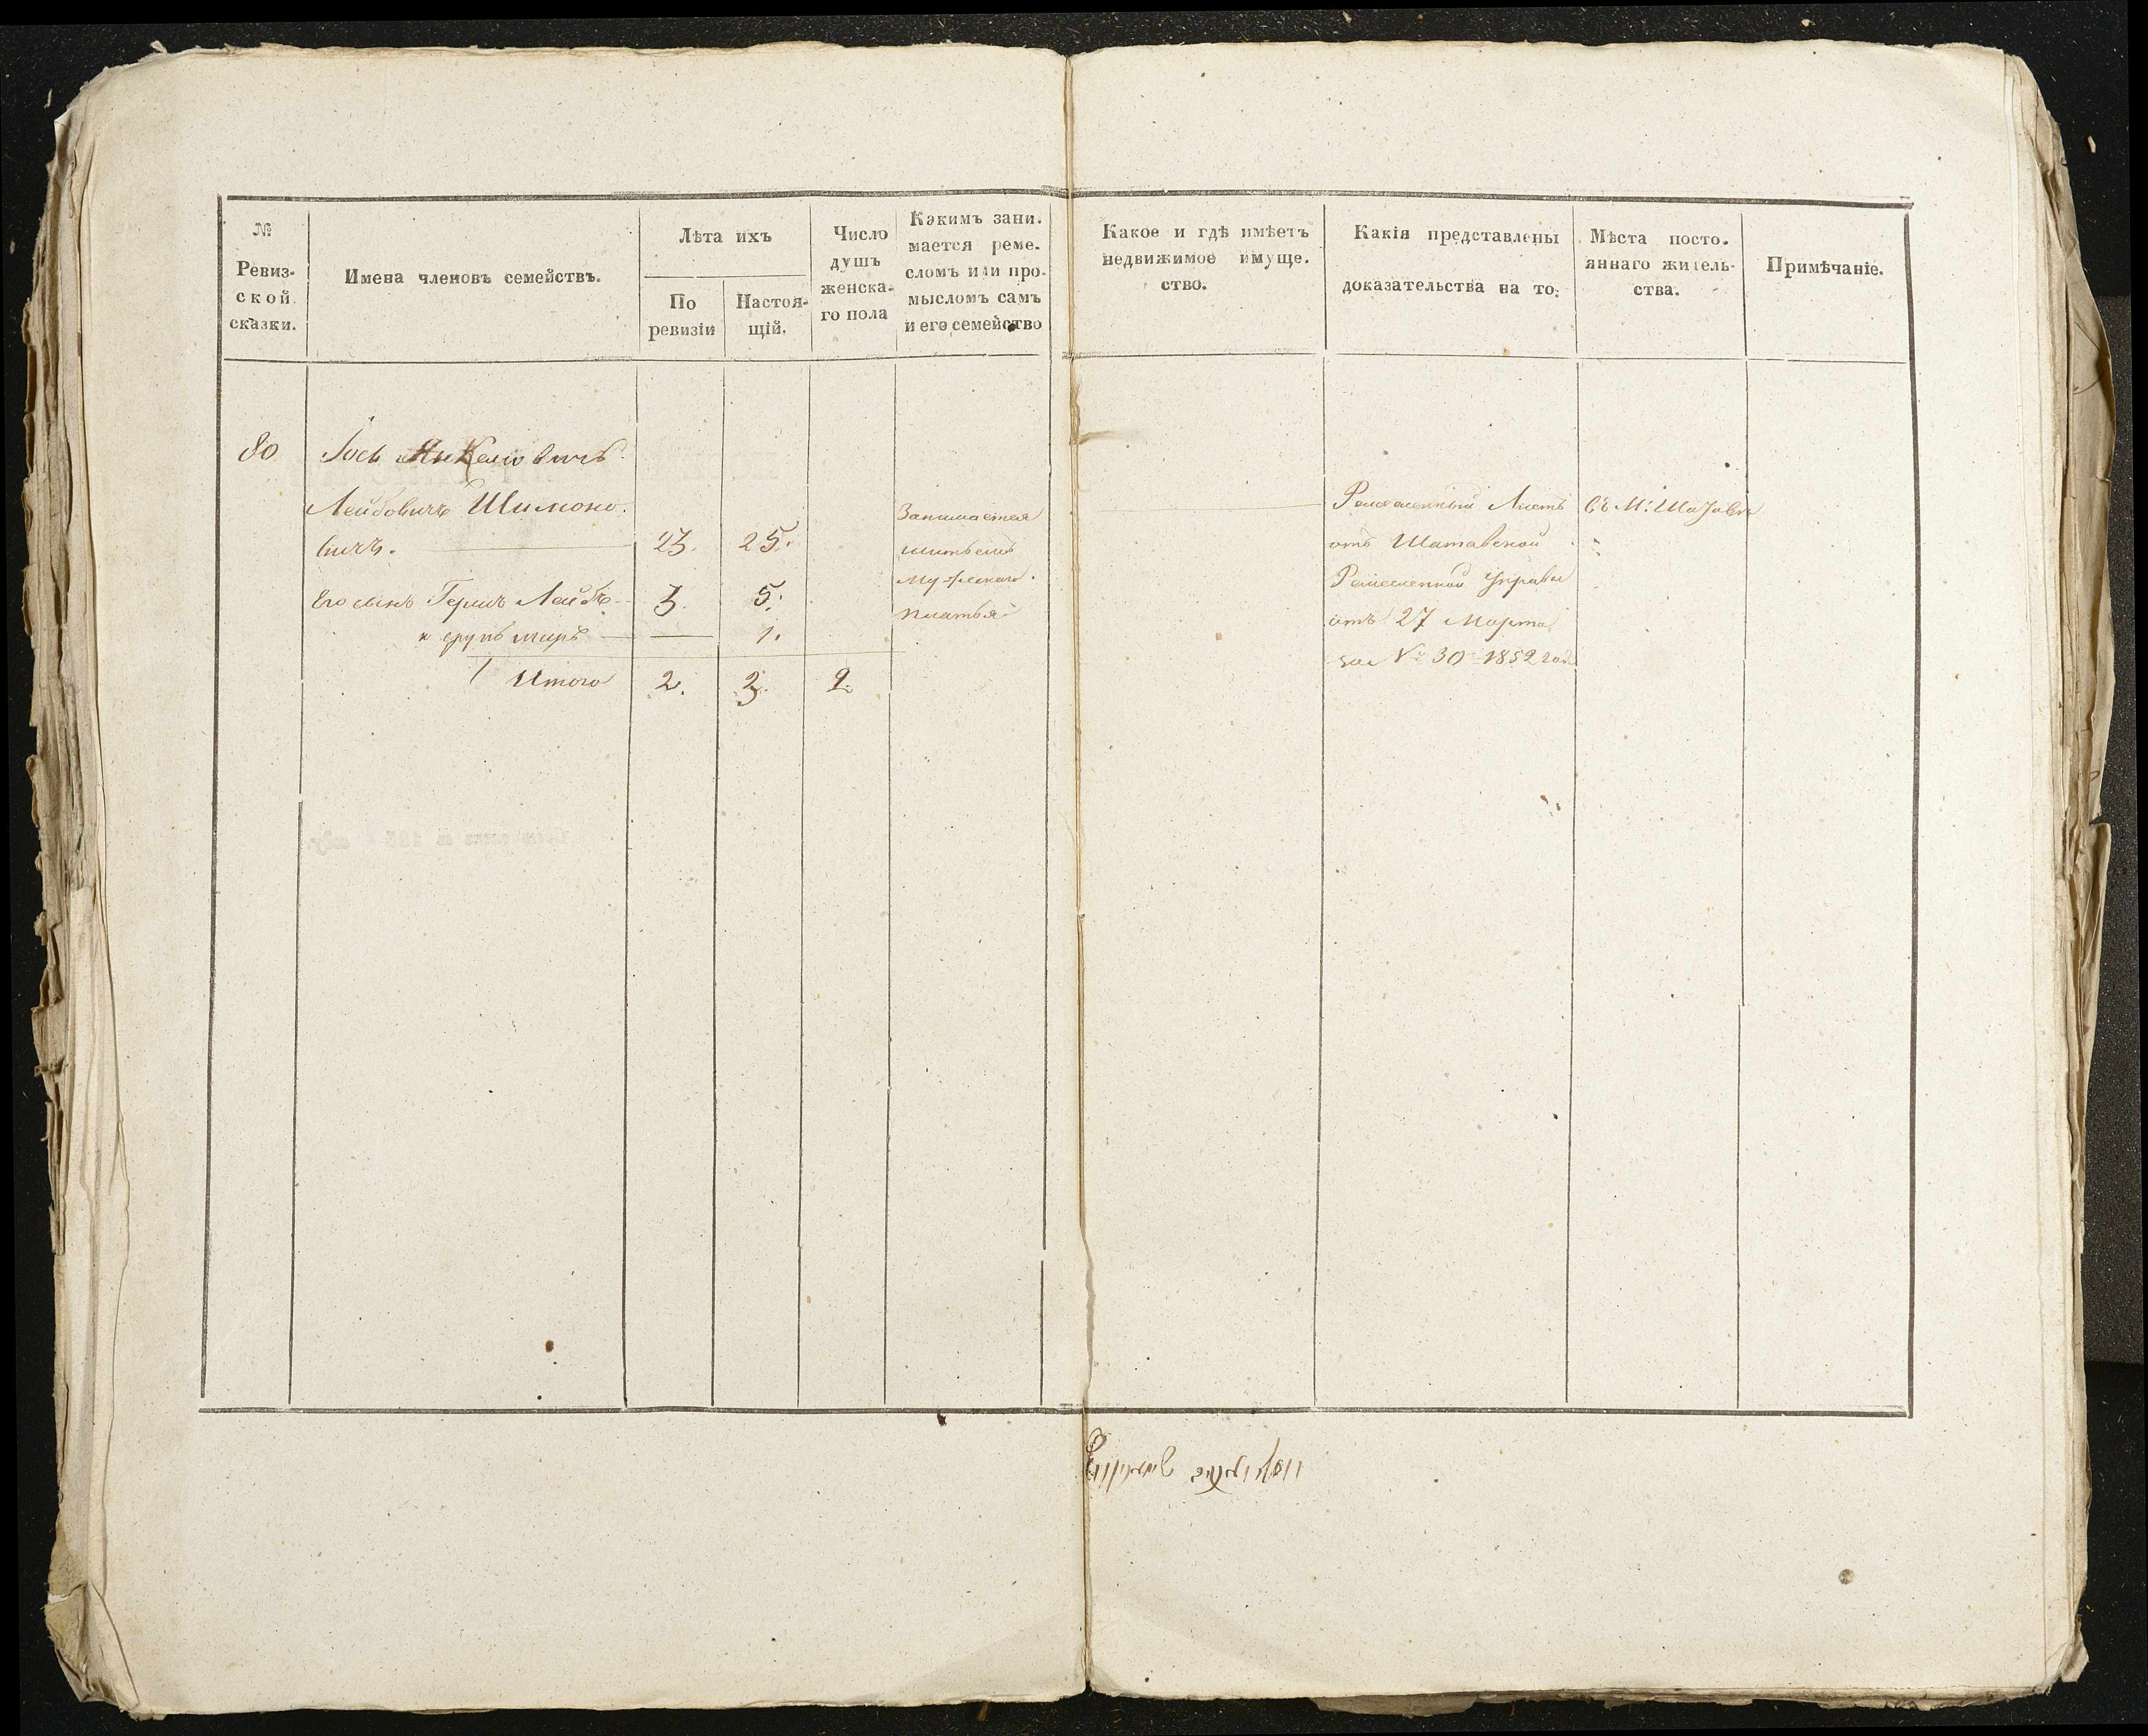 №
Ревиз-
ской
сказки.
Имена членовъ семействъ.
Лѣта ихъ
По
ревизіи
Настоя-
щій.
Число
душъ
женска-
го пола
Какимъ зани-
мается реме-
сломъ или про-
мысломъ самъ
и его семейство
Какое и гдѣ имѣетъ
недвижимое имуще-
ство.
Какія представлены
доказательства на то:
Мѣста посто-
яннаго житель-
ства.
Примѣчаніе.
80
Іось Янкеліовичъ
Лейбовичъ Шимоно-
вичъ. 23. 25.
Его сынъ Гершъ Лейбъ 3. 5.
1.
Итого 2. 3. 2.
Занимается
шитьемъ
мужскаго
платья
Ремесленный Листъ
отъ Шатавской
Ремесленной Управы
отъ 27 Марта
за № 30 1852 года
Въ М: Шатавѣ